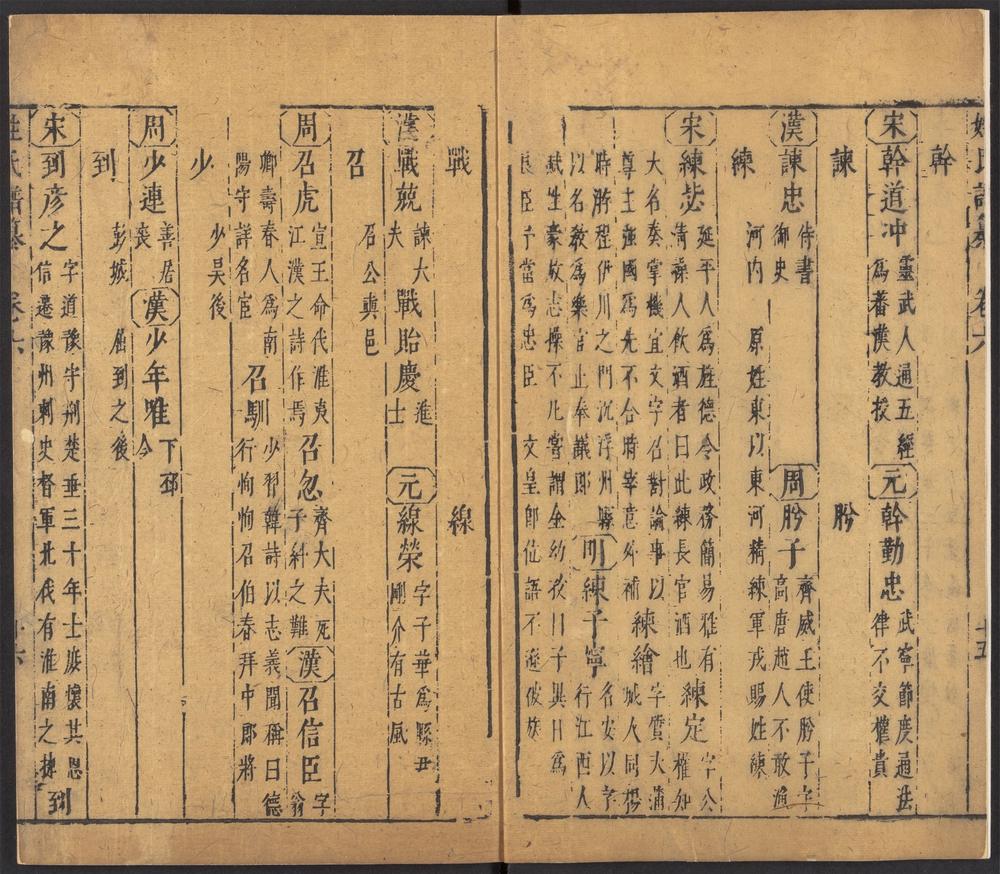 姓氏譜纂 卷六 十五
幹
宋 幹道冲 靈武人通五經為蕃漢教授 元 幹勤忠 武寧節度通法律不交權貴
諫 肹
漢 諫忠 侍書御史 周 肹子 齊威王使肹子守高唐趙人不敢漁
練 河內 原姓東以東河精練軍戎賜姓練
宋 練毖 延平人為旌德令政務簡易雅有清譽人飲酒者曰此練長官酒也 練定 字公權知
大名奏掌機宜文字召對論事以尊主強國為先不合時宰意外補 練繪 字質夫浦城人同楊
時游程伊川之門沉浮州縣以名教為樂官止奉議郎 明 練子寧 名安以字行江西人
賦性豪敏志操不凡嘗謂金幼孜曰子異日為良臣予當為忠臣 文皇即位語不遜被族
戰 線
漢 戰兢 諫大夫 戰貽慶 進士 元 線榮 字子華為縣丞剛介有古風
召 召公奭邑
周 召虎 宣王命伐淮夷江漢之詩作焉 召忽 齊大夫死子糾之難 漢 召信臣 字翁
卿壽春人為南陽守詳名宦 召馴 少習韓詩以志義聞稱曰德行恂恂召伯春拜中郎將
少 少昊後
周 少連 善居喪 漢 少年唯 下邳令
到 彭城 屈到之後
宋 到彥之 字道豫守荊楚垂三十年士庶懷其恩信遷豫州刺史督軍北伐有淮南之捷 到
姓氏譜纂 卷六 十六